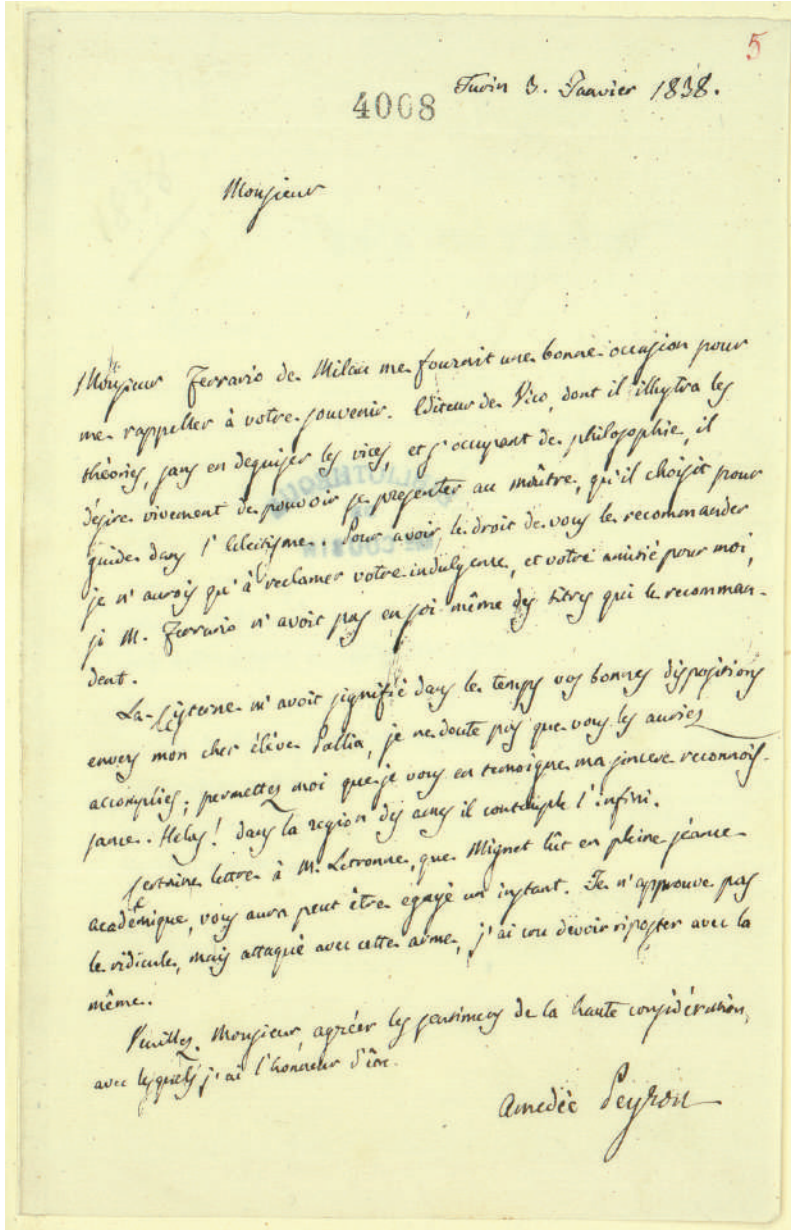 5
4008 Turin 3. Janvier 1838.
Monsieur
Monsieur Ferrario de Milan me fournit une bonne occasion pour
me rappeller à votre souvenir. Editeur de Vico, dont il illustra les
théories, sans en deguiser les vices, et s'occupant de philosophie, il
désire vivement de pouvoir se presenter au maître, qu'il choisit pour
guide dans l'Eclectisme. Pour avoir le droit de vous le recommander
je n'aurois qu'à reclamer votre indulgence, et votre amitié pour moi,
si M. Ferrario n'avoit pas en soi même des titres qui le recomman-
dent.
La Cisterne m'avoit signifié dans le temps vos bonnes dispositions
envers mon cher élève Pallia, je ne doute pas que vous les auriez
accomplies; permettez moi que je vous en temoigne ma sincere reconnois-
sance. Helas! dans la region des ames il contemple l'infini.
Certaine lettre à M. Letronne, que Mignet lût en pleine séance
académique, vous aura peut être egayé un instant. Je n'approuve pas
le ridicule, mais attaqué avec cette arme, j'ai cru devoir riposter avec la
même.
Veuillez, Monsieur, agréer les sentimens de la haute considération,
avec lesquels j'ai l'honneur d'être
Amedée Peyron